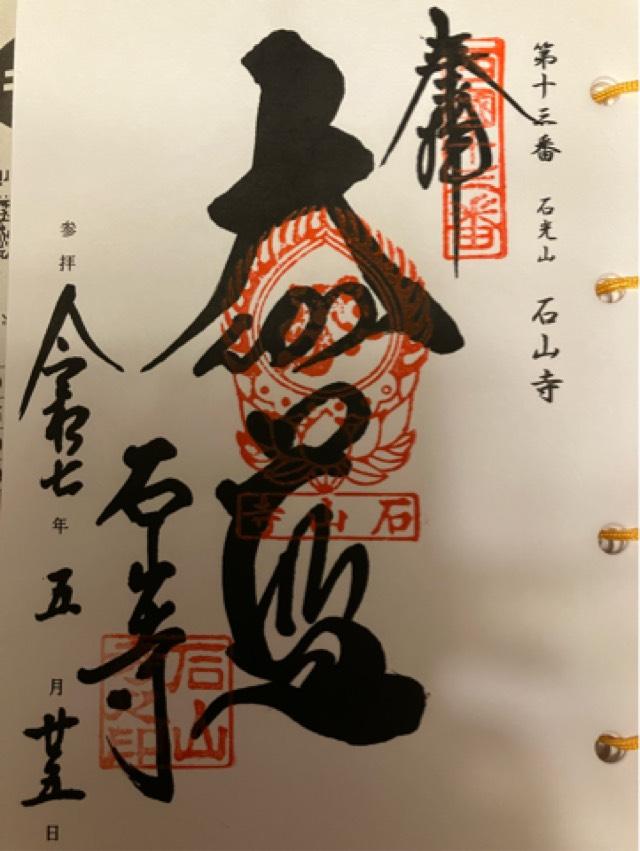 第十三番 石光山 石山寺
西国十三番
奉拝
大伽藍
石山寺
石山寺
石山寺之印
参拝 令和七年五月廿五日